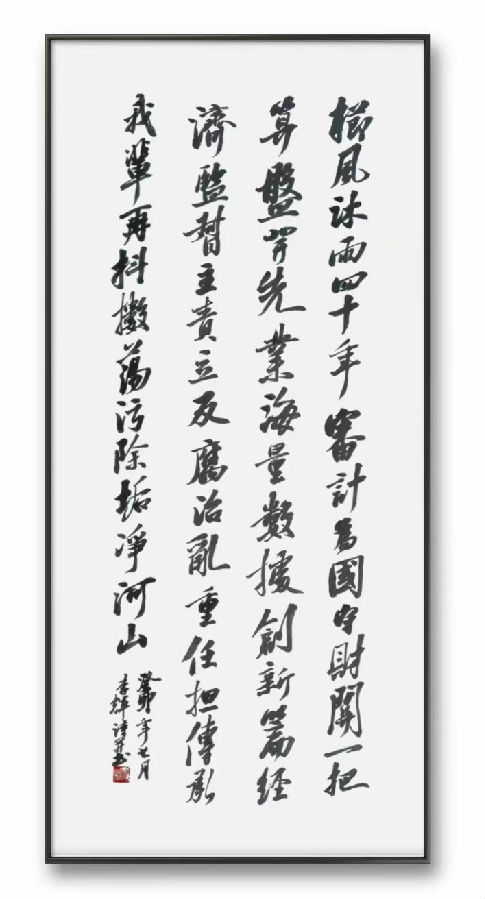 櫛風沐雨四十年審計為國守財關一把
算盤罡先業海量數據創新篇经
濟監督主責立反腐治亂重任担傳承
我輩再抖擻蕩污除垢凈河山
癸卯年七月
李輝詩并书